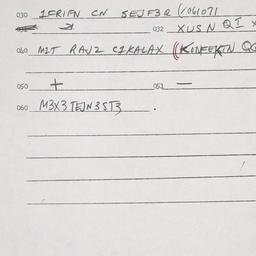 030 IFRIFN CN SEJF3R (V061071
032 XUSN QI X
040 MIT RAJ2 CIKALAX (KONFEKTN QG
050 + 051 —
060 M3X3TEJN3ST3 .